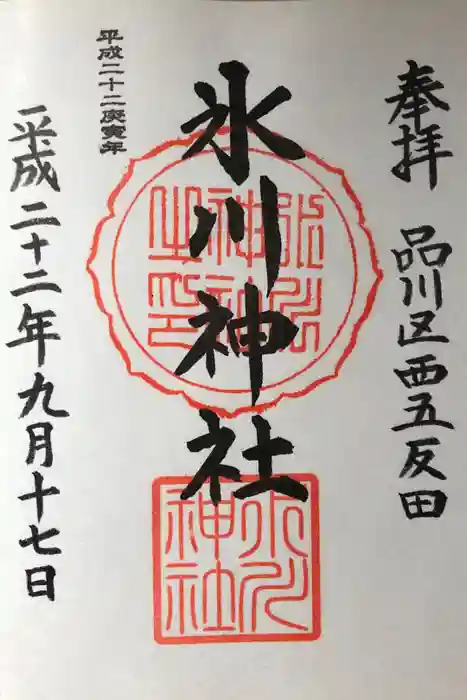 奉拝 品川区西五反田
氷川神社
氷川神社之印
氷川神社
平成二十二庚寅年
平成二十二年九月十七日